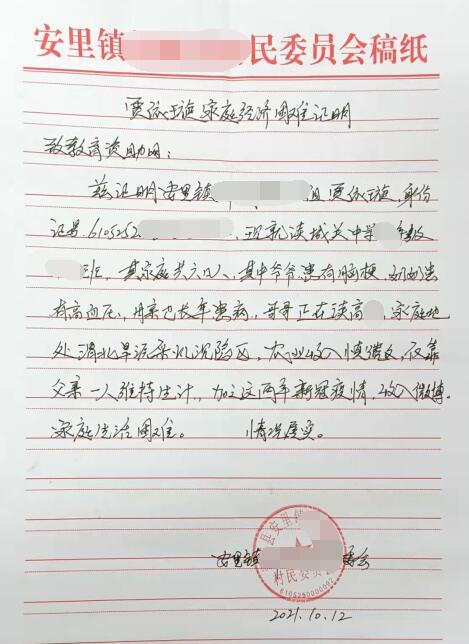 安里镇 民委员会稿纸
贾依施家庭经济困难证明
致教育资助网：
兹证明安里镇 组贾依施,身份
证号6105252 ,现就读城关中学 年级
班,其家庭共六口人,其中爷爷患有脑梗,奶奶患
有高血压,母亲也长年患病,哥哥正在读高 ,家庭地
处渭北旱涝 沉陷区,农业收入 ,仅靠
父亲一人维持生计,加之这两年新冠疫情,收入微薄。
家庭生活困难。 情况属实。
县安里镇
村民委员
安里镇 委会
2021.10.12